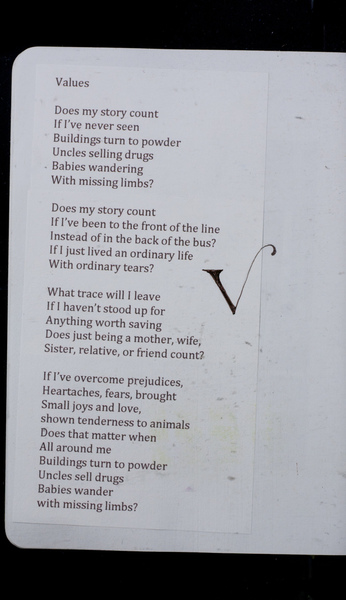 Values
Does my story count
If I've never seen
Buildings turn to powder
Uncles selling drugs
Babies wandering
With missing limbs?
Does my story count
If I've been to the front of the line
Instead of in the back of the bus?
If I just lived an ordinary life
With ordinary tears?
V
What trace will I leave
If I haven't stood up for
Anything worth saving
Does just being a mother, wife,
Sister, relative, or friend count?
If I've overcome prejudices,
Heartaches, fears, brought
Small joys and love,
shown tenderness to animals
Does that matter when
All around me
Buildings turn to powder
Uncles sell drugs
Babies wander
with missing limbs?